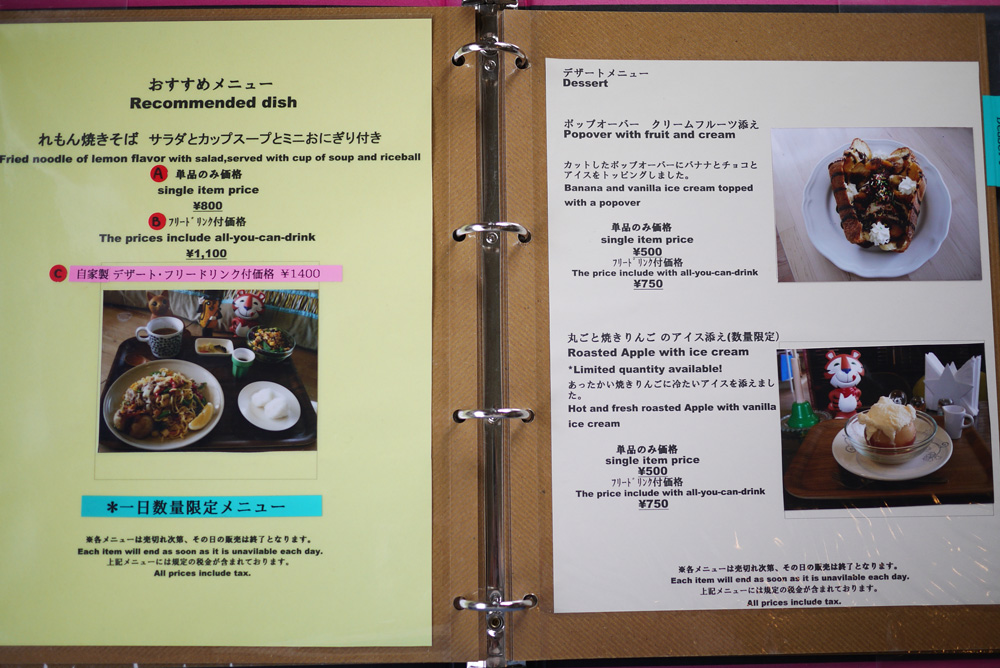 おすすめメニュー
Recommended dish
れもん焼きそば サラダとカップスープとミニおにぎり付き
Fried noodle of lemon flavor with salad,served with cup of soup and riceball
A 単品のみ価格
single item price
¥800
B ﾌﾘｰﾄﾞﾘﾝｸ付価格
The prices include all-you-can-drink
¥1,100
C 自家製 デザート・フリードリンク付価格 ¥1400
＊一日数量限定メニュー
※各メニューは売切れ次第、その日の販売は終了となります。
Each item will end as soon as it is unavilable each day.
上記メニューには規定の税金が含まれております。
All prices include tax.
デザートメニュー
Dessert
ポップオーバー クリームフルーツ添え
Popover with fruit and cream
カットしたポップオーバーにバナナとチョコと
アイスをトッピングしました。
Banana and vanilla ice cream topped
with a popover
単品のみ価格
single item price
¥500
ﾌﾘｰﾄﾞﾘﾝｸ付価格
The price include with all-you-can-drink
¥750
丸ごと焼きりんご のアイス添え(数量限定)
Roasted Apple with ice cream
*Limited quantity available!
あったかい焼きりんごに冷たいアイスを添えまし
た。
Hot and fresh roasted Apple with vanilla
ice cream
単品のみ価格
single item price
¥500
ﾌﾘｰﾄﾞﾘﾝｸ付価格
The price include with all-you-can-drink
¥750
※各メニューは売切れ次第、その日の販売は終了となります。
Each item will end as soon as it is unavailable each day.
上記メニューには規定の税金が含まれております。
All prices include tax.